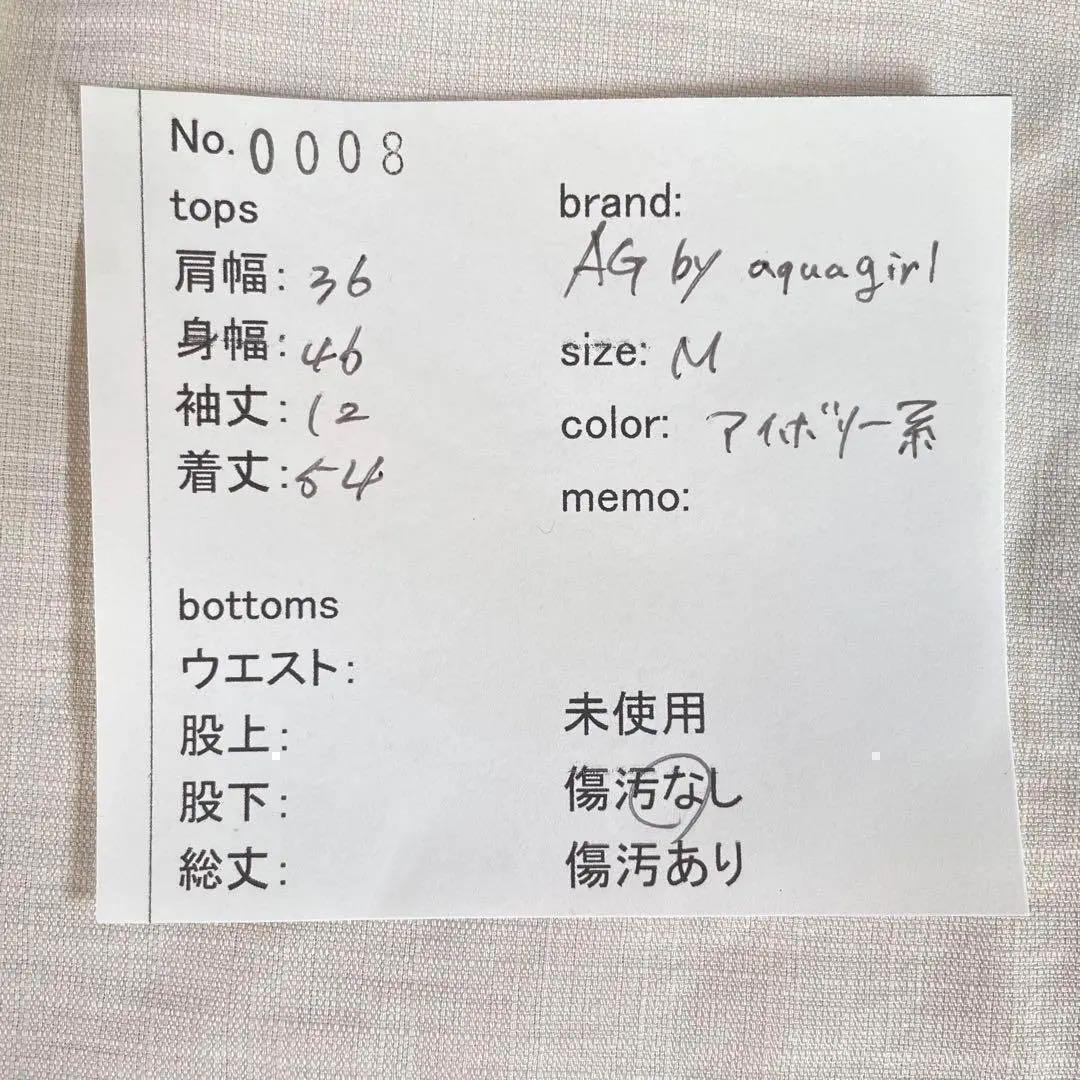 No. 0008
tops
肩幅: 36
身幅: 46
袖丈: 12
着丈: 54
brand:
AG by aquagirl
size: M
color: アイボリー系
memo:
bottoms
ウエスト:
股上:
股下:
総丈:
未使用
傷汚なし
傷汚あり